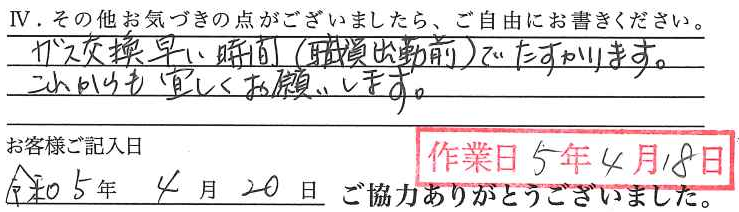 Ⅳ．その他お気づきの点がございましたら、ご自由にお書きください。
ガス交換早い時間(職員出勤前)でたすかります。
これからも宜しくお願いします。
お客様ご記入日
作業日 5年4月18日
令和05年 4月20日 ご協力ありがとうございました。